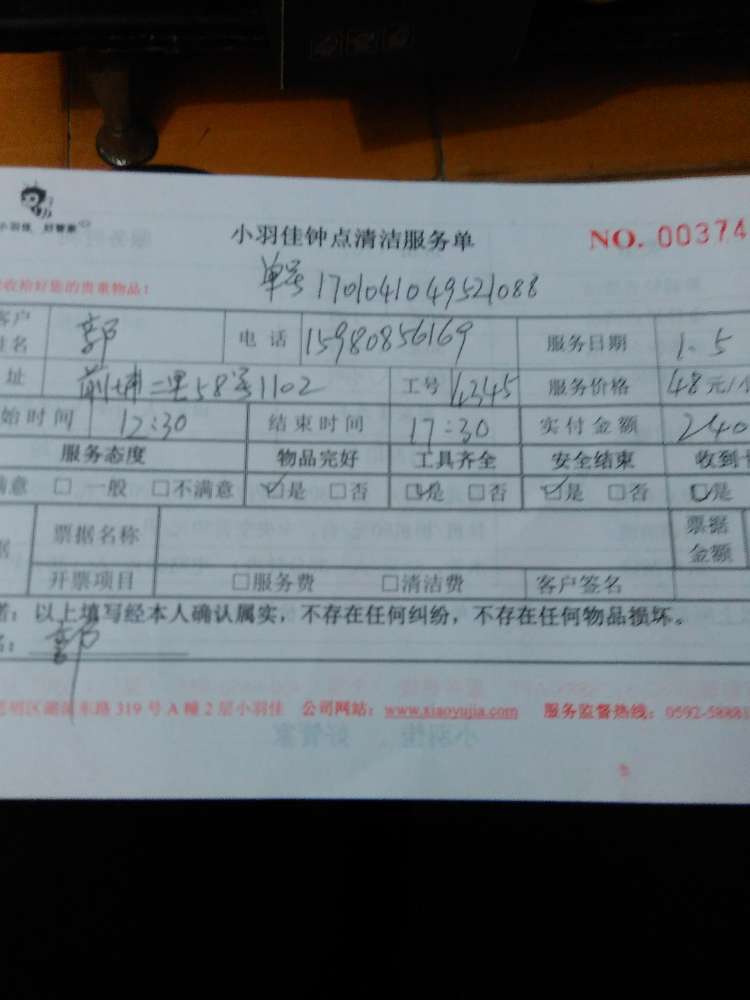 小羽佳 好管家
小羽佳钟点清洁服务单 NO. 00374
单号 1701041049521088
收拾好您的贵重物品!
客户姓名 郭 电话 15980856169 服务日期 1.5
址 前埔二里58号1102 工号 4345 服务价格 48元/
始时间 12:30 结束时间 17:30 实付金额 240
服务态度 物品完好 工具齐全 安全结束 收到
满意 □ 一般 □不满意 ☑是 □否 ☑是 □否 ☑是 □否 ☑是
据 票据名称 票据金额
开票项目 □服务费 □清洁费 客户签名
诺:以上填写经本人确认属实,不存在任何纠纷,不存在任何物品损坏。
名: 郭
思明区湖滨东路 319 号 A 幢 2 层小羽佳 公司网站:www.xiaoyujia.com 服务监督热线:0592-5888